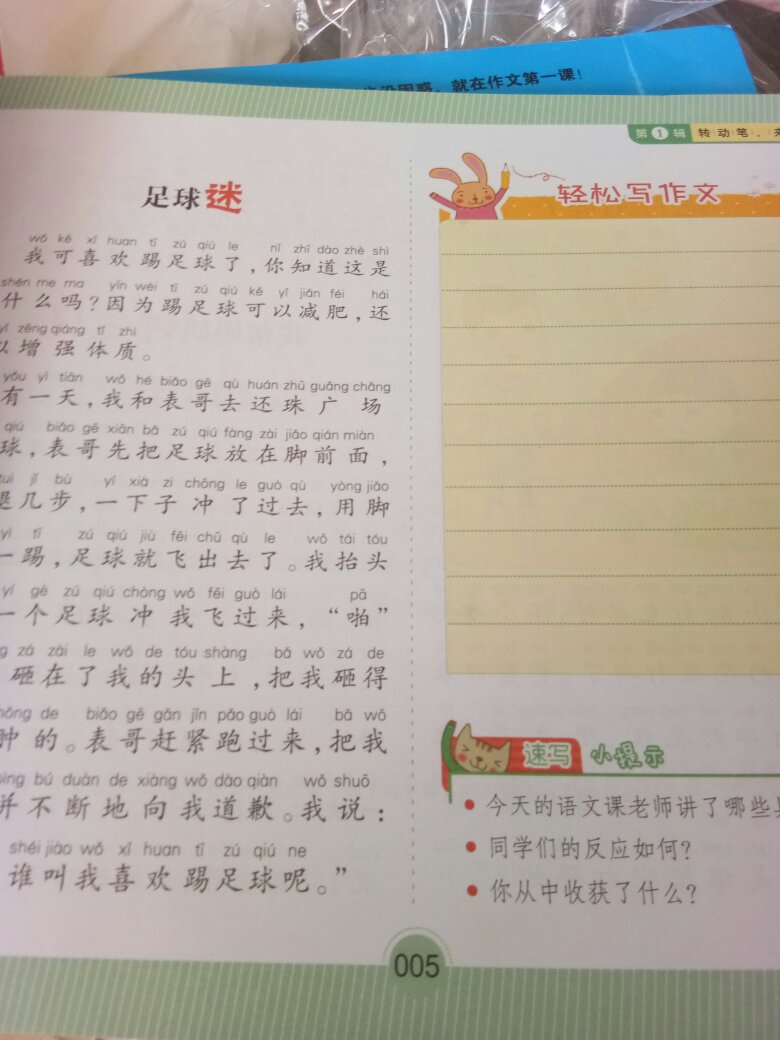 困惑，就在作文第一课！
第1辑 转动笔，来
足球迷
wǒ kě xǐ huan tī zú qiú le nǐ zhī dào zhè shì
我可喜欢踢足球了，你知道这是
shén me ma yīn wèi tī zú qiú kě yǐ jiǎn féi hái
什么吗？因为踢足球可以减肥，还
yǐ zēng qiáng tǐ zhì
以增强体质。
yǒu yì tiān wǒ hé biǎo gē qù huán zhū guǎng chǎng
有一天，我和表哥去还珠广场
qiú biǎo gē xiān bǎ zú qiú fàng zài jiǎo qián miàn
球，表哥先把足球放在脚前面，
tuì jǐ bù yí xià zi chōng le guò qù yòng jiǎo
退几步，一下子冲了过去，用脚
yì tī zú qiú jiù fēi chū qù le wǒ tái tóu
一踢，足球就飞出去了。我抬头
yí gè zú qiú chòng wǒ fēi guò lái pā
一个足球冲我飞过来，“啪”
zá zài le wǒ de tóu shàng bǎ wǒ zá de
砸在了我的头上，把我砸得
zhǒng de biǎo gē gǎn jǐn pǎo guò lái bǎ wǒ
肿的。表哥赶紧跑过来，把我
bìng bú duàn de xiàng wǒ dào qiàn wǒ shuō
并不断地向我道歉。我说：
shéi jiào wǒ xǐ huan tī zú qiú ne
谁叫我喜欢踢足球呢。”
轻松写作文
速写 小提示
• 今天的语文课老师讲了哪些
• 同学们的反应如何？
• 你从中收获了什么？
005